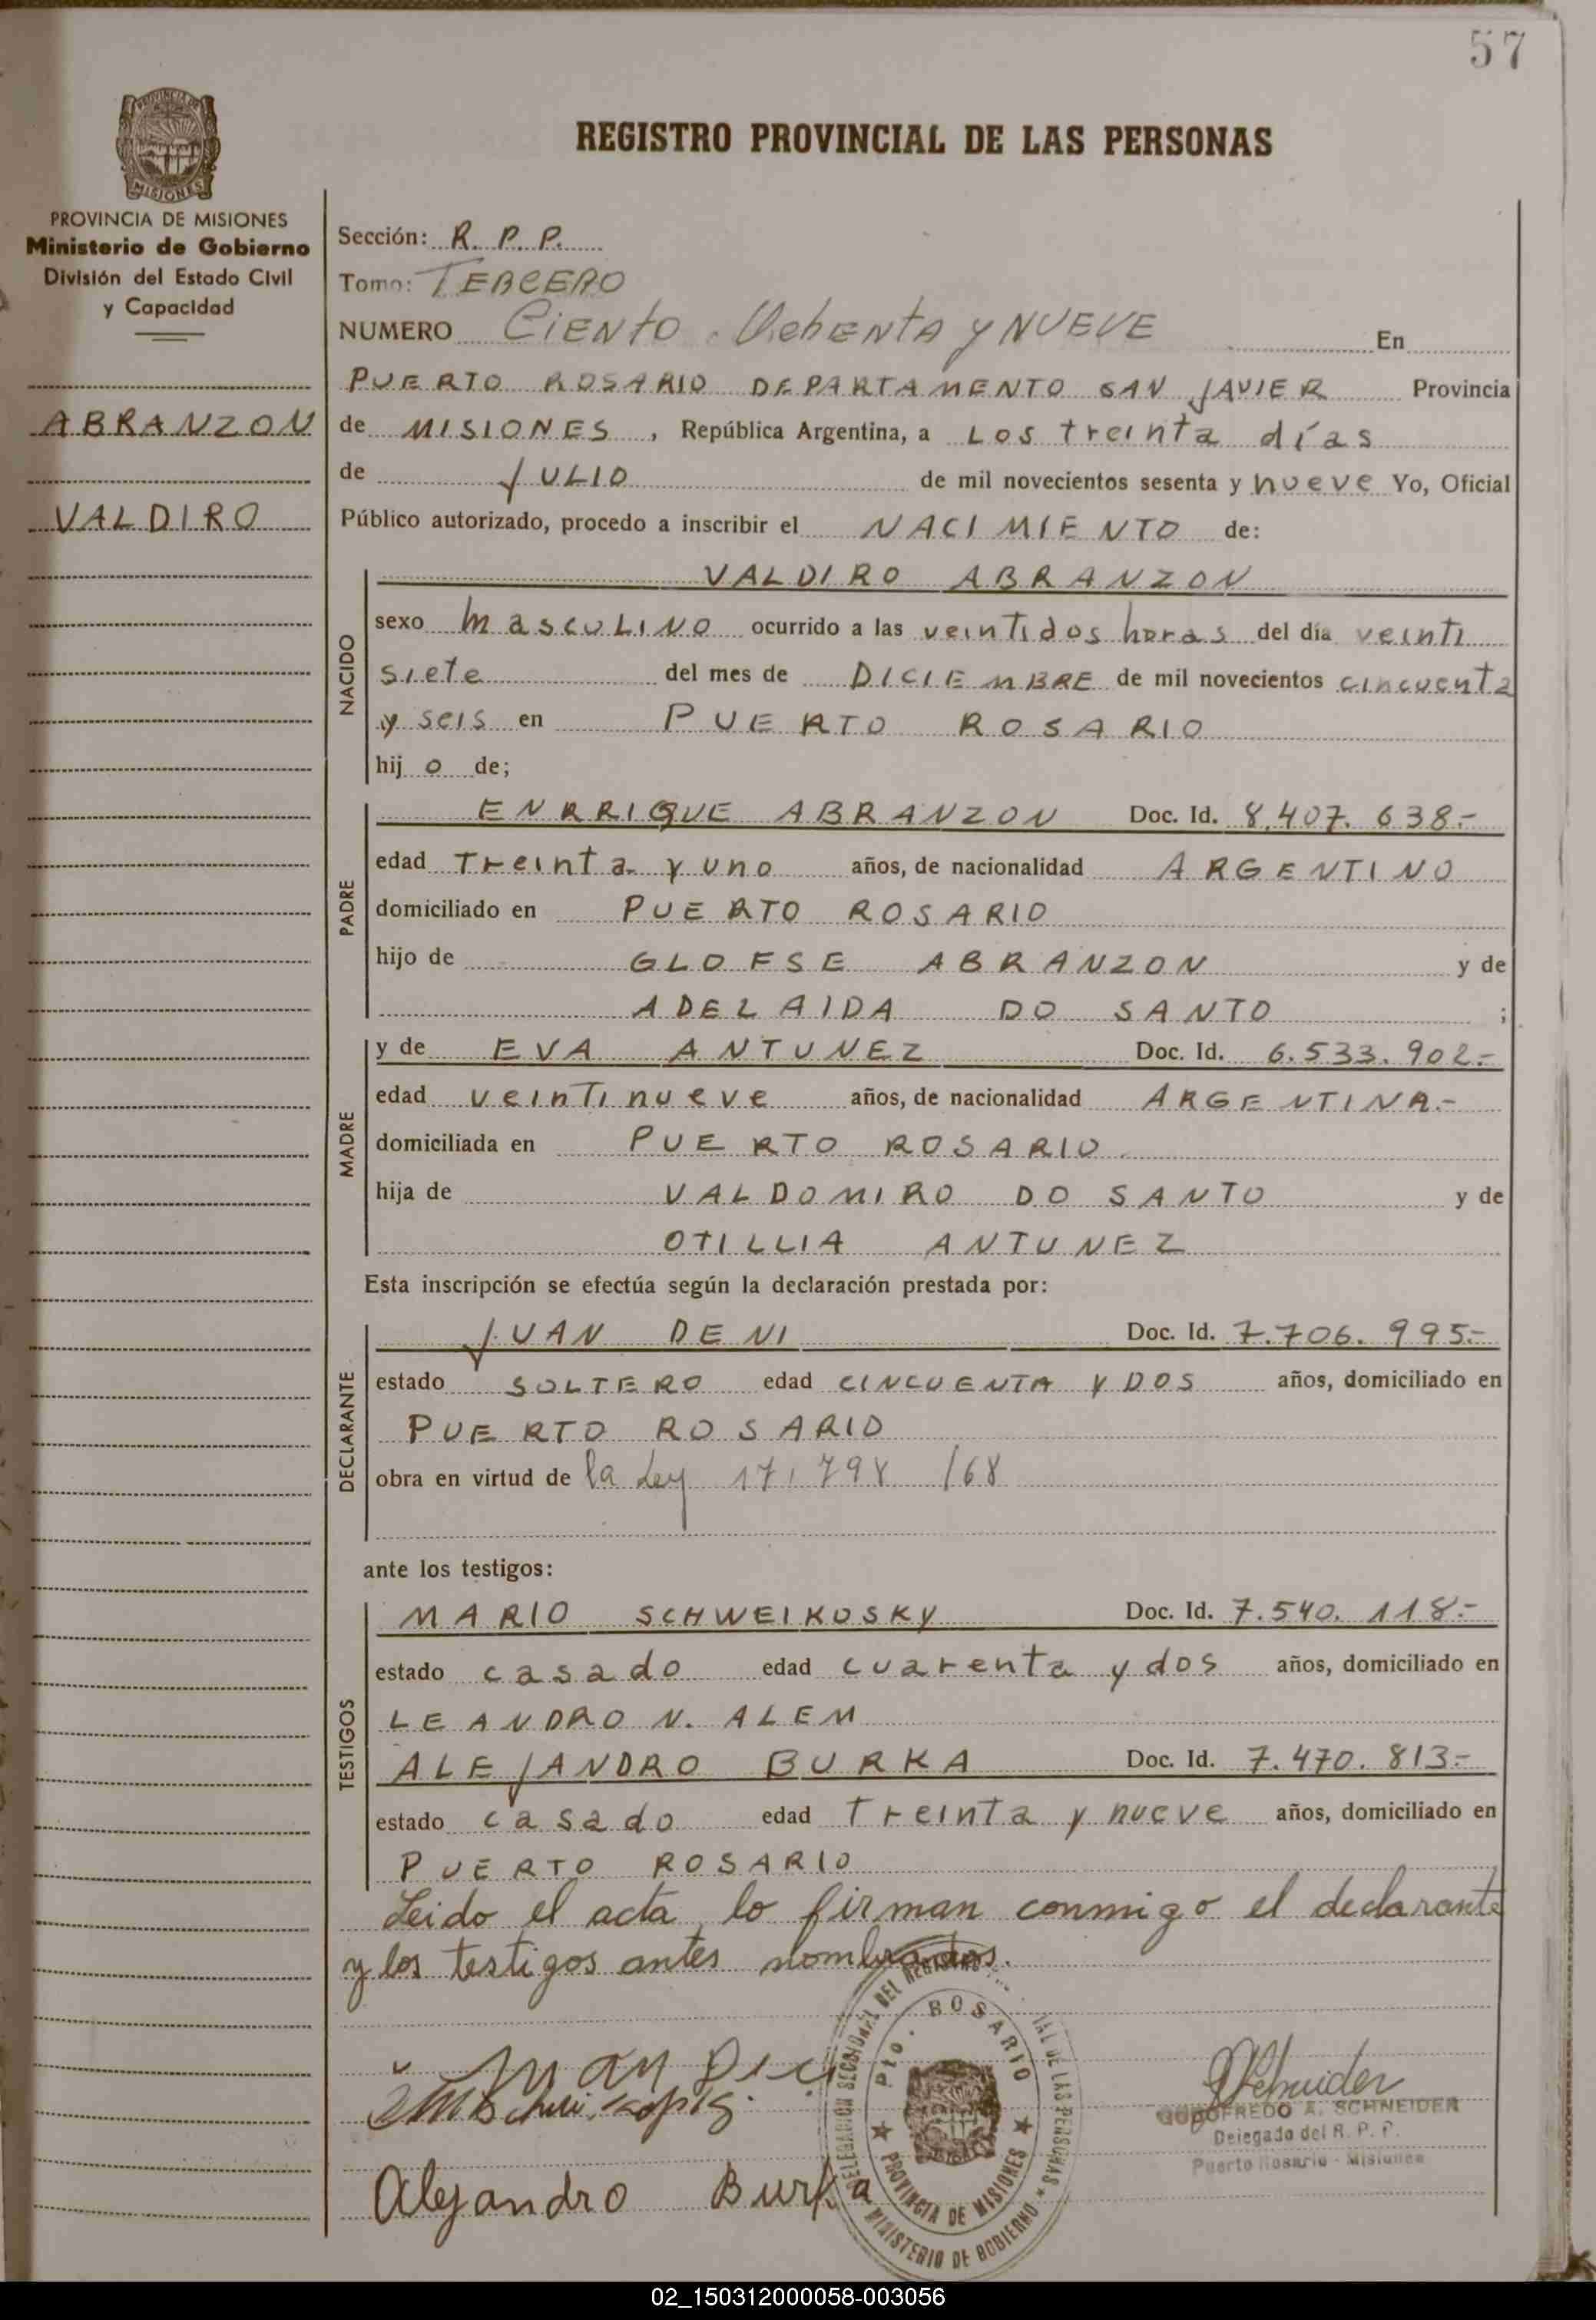 57
REGISTRO PROVINCIAL DE LAS PERSONAS
PROVINCIA DE MISIONES
Ministerio de Gobierno
División del Estado Civil
y Capacidad
ABRANZON
VALDIRO
Sección: R. P. P.
Tomo: TERCERO
NUMERO CIENTO OCHENTA Y NUEVE En
PUERTO ROSARIO DEPARTAMENTO SAN JAVIER Provincia
de MISIONES, República Argentina, a LOS treinta días
de JULIO de mil novecientos sesenta y nueve Yo, Oficial
Público autorizado, procedo a inscribir el NACIMIENTO de:
VALDIRO ABRANZON
NACIDO
sexo MascULINO ocurrido a las veintidos horas del día veinti
siete del mes de DICIEMBRE de mil novecientos cincuenta
y seis en PUERTO ROSARIO
hijo de;
PADRE
ENRRIQUE ABRANZON Doc. Id. 8.407.638.-
edad Treinta y uno años, de nacionalidad ARGENTINO
domiciliado en PUERTO ROSARIO
hijo de GLOFSE ABRANZON y de
ADELAIDA DO SANTO ;
MADRE
y de EVA ANTUNEZ Doc. Id. 6.533.902.-
edad veintinueve años, de nacionalidad ARGENTINA.-
domiciliada en PUERTO ROSARIO
hija de VALDOMIRO DO SANTO y de
OTILLIA ANTUNEZ
Esta inscripción se efectúa según la declaración prestada por:
DECLARANTE
JUAN DENI Doc. Id. 7.706.995.-
estado SOLTERO edad CINCUENTA Y DOS años, domiciliado en
PUERTO ROSARIO
obra en virtud de la Ley 17.798 /68
ante los testigos:
TESTIGOS
MARIO SCHWEIKOSKY Doc. Id. 7.540.118.-
estado casado edad cuarenta y dos años, domiciliado en
LEANDRO N. ALEM
ALEJANDRO BURKA Doc. Id. 7.470.813.-
estado casado edad treinta y nueve años, domiciliado en
PUERTO ROSARIO
Leido el acta, lo firman conmigo el declarante
y los testigos antes nombrados.
Juan
Alejandro Burka
DELEGACION SECCIONAL DEL REGISTRO
DE LAS PERSONAS
Pto. ROSARIO
PROVINCIA DE MISIONES
MINISTERIO DE GOBIERNO
Schneider
GODOFREDO A. SCHNEIDER
Delegado del R. P. P.
Puerto Rosario - Misiones
02_150312000058-003056